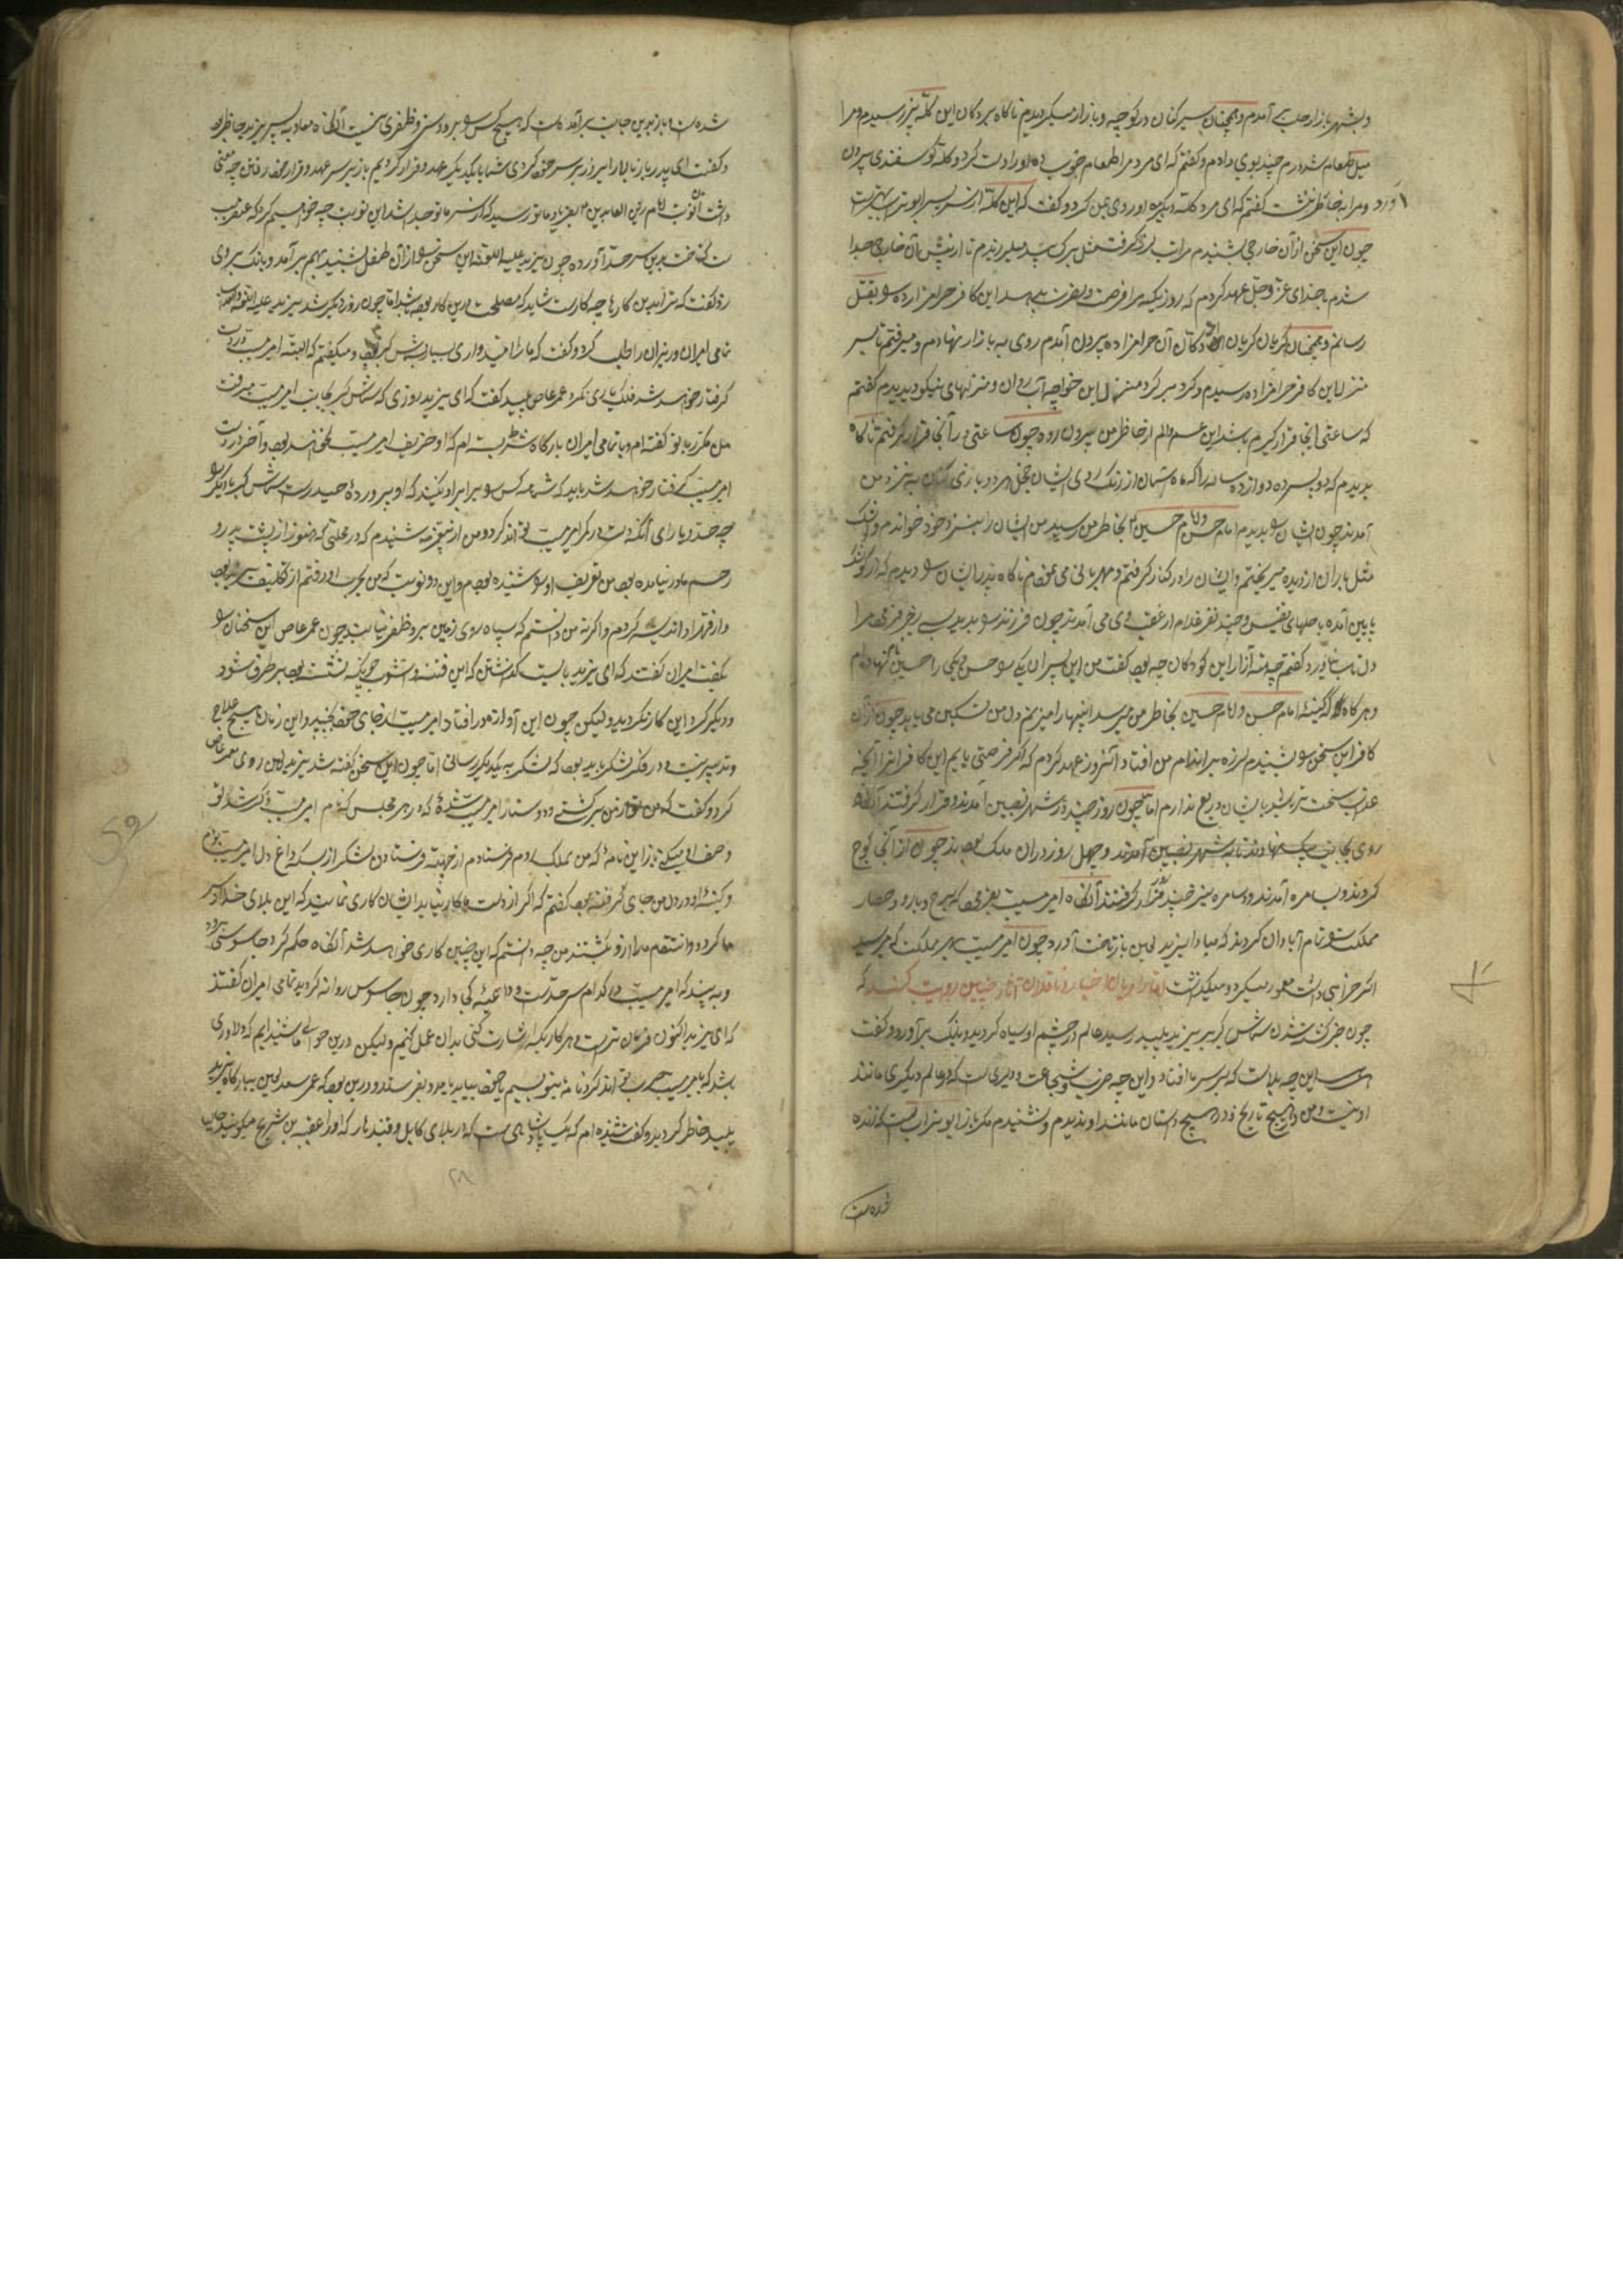 و بشهر بازار حلب آمدم و همچنان سیر کنان در کوچه و بازار میکردیدم ناکاه بر دکان این کله پز رسیدم و مرا
میل طعام شد درم چند بوی دادم و کفتم که ای مرد مرا طعام خوب ده او راست کرد و کله کوسفندی بیرون
آورد و مرا به خاطر ننشست کفتم که ای مرد کله دیکر بده او روی بمن کرد و کفت که این کله از سر پسر ابو تراب بهتر است
چون این سخن از آن خارجی بشنیدم مرا تب لرزه کرفت مثل برک بید میلرزیدم تا از پیش آن خارجی جدا
شدم با خدای عز و جل عهد کردم که روزیکه مرا فرصت و نصرت بدهد این کافر حرامزاده سو بقتل
رسانم و همچنان کریان کریان از دکان آن حرامزاده بیرون آمدم روی به بازار نهادم و میرفتم تا بسر
منزل این کافر حرامزاده رسیدم و کرد بر کرد منزل این خواجه آب روان و منزلهای نیکو دیدم کفتم
که ساعتی اینجا قرار کیرم باشد این غم و الم از خاطر من بیرون رود چون ساعتی در آنجا قرار کرفتم ناکاه
بدیدم که دو پسر ده دوازده ساله را که ماه آسمان از رنک روی ایشان خجل بود و بازی کنان به نزد من
آمدند چون ایشان سو بدیدم امام حسن و امام حسین بخاطر من رسید من ایشان را بنزد خود خواندم و اشک
مثل باران از دیده میریختم و ایشان را در کنار کرفتم و مهربانی می نمودم ناکاه پدر ایشان سو دیدم که از کوشک
پایین آمده با جامهای نفیس و چند نفر غلام از عقب وی می آمدند چون فرزند سو بدید
دل تاب نیاورد کفتم چه آزار این کودکان چه بود کفت من این پسران یکی سو حسن و یکی را حسین نام نهاده ام
و هر کاه که کینه امام حسن و امام حسین بخاطر من میرسد اینها را میزنم دل من تسکین می یابد چون از آن
کافر این سخن سو بشنیدم لرزه بر اندام من افتاد آنروز عهد کردم که اکر فرصتی یابم این کافر را آنچه
عذاب سخت تر بدیشان دریغ ندارم اما چون روز چند در شهر نصیبین آمدند و قرار کرفتند آنکاه
روی بجانب نهادند تا به شهر نصیبین آمدند و چهل روز در آن ملک بودند چون از آنجا کوچ
کردند و به سامره آمدند و در سامره نیز چند روز قرار کرفتند آنکاه امیر مسیب بفرمود که برج و بارو و حصار
مملکت سو تمام آبادان کردند که مبادا یزید لعین باز تاخت آورد چون امیر مسیب بهر مملکت که میرسید
اکر خرابی داشت معمور میکرد و میکذشت اما راویان اخبار و ناقلان آثار چنین روایت کنند که
چون خبر کشته شدن شماس کبر به یزید پلید رسید عالم در چشم او سیاه کردید و بانک برآورد و کفت
این چه بلاست که بر سر ما افتاد و این چه حرب و شجاعت و دلیری است که در عالم دیکری مانند
او نیست و من در هیچ تاریخ و در هیچ داستان مانند او ندیدم و نشنیدم مکر باز ابو تراب است که زنده
شده است
شده است و باز بدین جانب برآمده است که هیچ کس سو برو دستی و ظفری نیست آنکاه معاویه پسر یزید حاضر بود
و کفت ای پدر باز ما را امروز بر سر خود کردی شما با یکدیکر عهد و قرار کردیم باز بر سر عهد و قرار خود رفتن چه معنی
داشت آن نوبت امام زین العابدین بفریاد ما و تو رسید که از سر ما و تو جدا شد این نوبت چه خواهیم کرد که عنقریب
بدین سرحد آورده چون یزید علیه اللعنه این سخن سو از آن طفل بشنید بهم برآمد و بانک بر وی
زد و کفت که ترا بدین کارها چه کار است شاید که مصلحت درین کار بوده باشد اما چون روز دیکر شد یزید علیه اللعنه
تمامی امیران و وزیران را طلب کرد و کفت که ما را امیدواری بسیار به شماس کبر بود و میکفتم که البته امیر مسیب
کرفتار خواهد شد فلک یاری نکرد عمر عاص پلید کفت که ای یزید روزی که شماس کبر بجانب امیر مسیب میرفت
من مکرر با تو کفته ام و با تمامی امیران بارکاه شرط بسته ام که او حریف امیر مسیب نخواهد بود و آخر در دست
امیر مسیب کرفتار خواهد شد باید که شما عکس سو برابر او نکنید که او پرورده حیدر است شماس کبر یا دیکر سو
چه حد و یارای آنکه دست در کمر امیر مسیب تواند کرد و من از شنیدم که در محلتی که هنوز از پشت پدر و
رحم مادر نیامده بود من تعریف او سو شنیده بودم و این دو نوبت که من بحرب او رفتم از
و از قهر او اندیشه کردم و اکر نه من دانستم که سپاه روی زمین برو ظفر نیابند چون عمر عاص این سخنان سو
بکفت امیران کفتند که ای یزید بایست کذاشتن که این فتنه و آشوب چونکه نشسته بود بر طرف شود
و دیکر کرد این کار نکردید ولیکن چون این آوازه در افتاد امیر مسیب از جای خود بجنبید و این زمان هیچ علاج
و تدبیر نیست در فکر لشکر باید بود که لشکر به یکدیکر رسانی اما چون این سخن کفته شد یزید لعین روی به عمر عاص
کرد و کفت که من از من برکشته و دوستدار امیر مسیب شده که در هر مجلس که نام امیر مسیب ذکر شد تو
وصف او میکنی باز این نامه که من بملک روم فرستادم از جهت فرستادن لشکر از بسکه داغ دل امیر مسیب بودم
و کینه او در دل من جای کرفته بود کفتم که اکر از دست ما کار نیاید ایشان کاری نمایند که این بلای خدا
ما کردد و انتقام ما را ازو بکشند من چه دانستم که این چنین کاری خواهد شد آنکاه حکم کرد جاسوسی برود
و به بیند که امیر مسیب در کدام سرحدست و داعیه کجا دارد چون جاسوس روانه کردید تمامی امیران کفتند
که ای یزید اکنون فرمان تراست هر کاری که اشارت کنی بدان عمل کنیم ولیکن درین حوالی ما شنیده ایم که دلاوری
باشد که با امیر مسیب حرب تواند کرد نامه بنویسیم یا خود بیاید یا مدد بفرستد و درین بود که عمر سعد لعین ببارکاه یزید
پلید حاضر کردید و کفت شنیده ام که یک پادشاهی هست که در بلای کابل و قندهار که او را عقبه بن شریح میکویند
۲۸